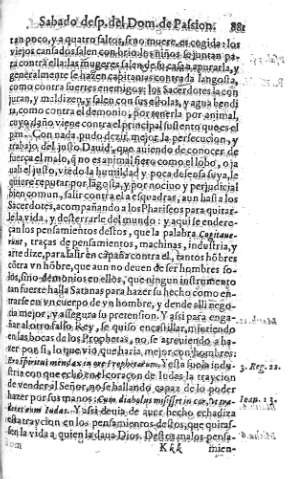 Sabado desp. del Dom. de Passion. 881
tan poco, y a quatro saltos, sino muere, es cogida: los
viejos cansados salen con brio, los niños se juntan pa-
ra contra ella: las mugeres salen de su casa a apurarla, y
generalmente se hazen capitanias contra da langosta,
como contra fuertes enemigos; los Sacerdotes la con
juran, y maldizen, y salen con sus estolas, y agua bendi
ta, como contra el demonio, por tenerla por animal,
cuyo daño viene contra el principal sustento que es el
pan. Con nada pudo dezir mejor la persecucion, y
trabajo del justo Dauid, que auiendo de conocer de
fuerça el malo, q̃ no es animal fiero como el lobo, o ja
uali el justo, viẽdo la humildad y poca defensa suya, le
quiere reputar por lãgosta, y por nociuo y perjudicial
bien comun, salir contra el a esquadras, aun hasta los
Sacerdotes, acompañando a los Phariseos para quitar-
le la vida, y desterrarle del mundo: y aqui se endere-
çan los pensamientos destos, que la palabra
uint, traças de pensamientos, machinas, industria, y
arte dize, para salir en cãpaña contra el, tantos hõbres
cõtra vn hõbre, que aun no deuen de ser hombres so-
los, sino demonios en ellos, que ningun instrumento
tan fuerte halla Satanas para hazer su hecho como en-
trarse en vn cuerpo de vn hombre, y desde alli nego-
cia mejor, y assegura su pretension. Y assi para enga-
ñar al otro falso Rey, se quiso encastillar, metiendo
en las bocas de los Prophetas, no se atreuiendo a ha-
zer por si, lo que vio, que haria, mejor con hombres:
Ero spiritus mendax in ore Prophetarum. Y esta sucia indu- 3. Reg. 22.
stria con que echò en el coraçon de Iudas la traycion
de vender al Señor, no se hallando capaz de lo poder
hazer por sus manos: Cum diabolus misisset in cor, vt tra- Ioan. 13.
deret eum Iudas. Y assi deuia de auer hecho echadiza
esta traycion en los pensamientos destos, que quita-
sen la vida a quien la daua Dios. Destos malos pensa-
Kkk mien-